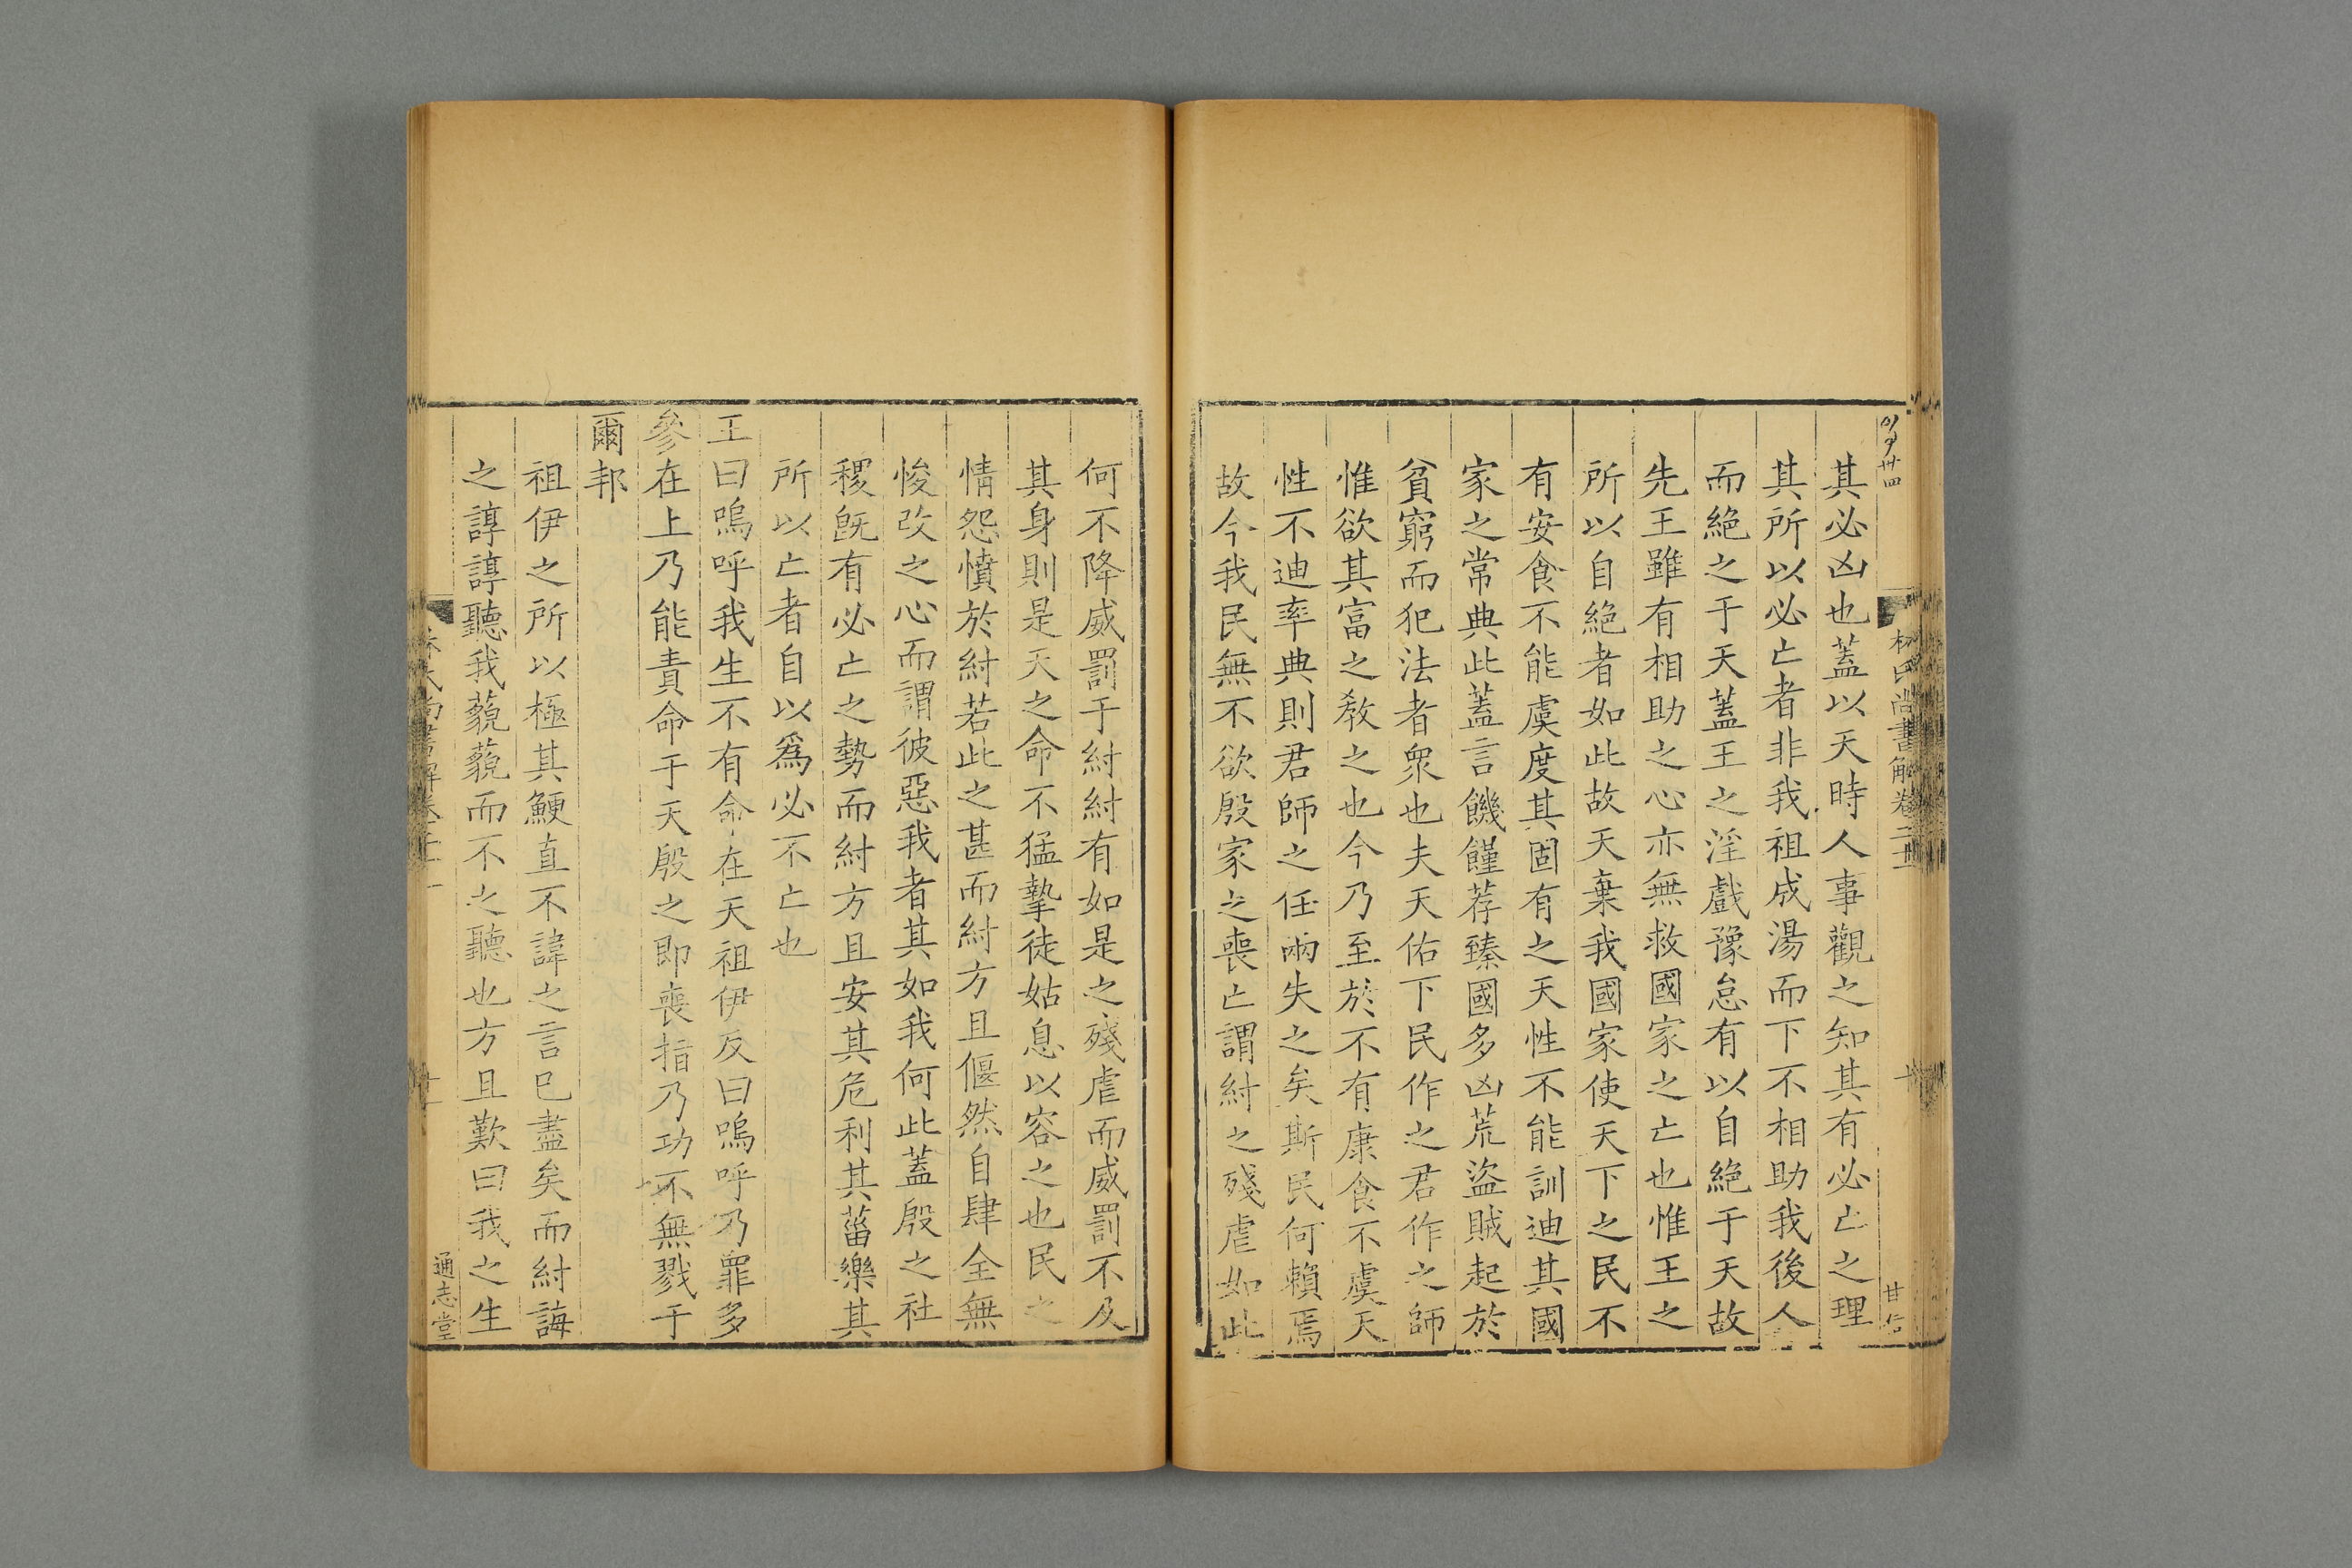 其必凶也蓋以天時人事觀之知其有必亡之理
其所以必亡者非我祖成湯而下不相助我後人
而絶之于天蓋王之淫戲豫怠有以自絶于天故
先王雖有相助之心亦無救國家之亡也惟王之
所以自絶者如此故天棄我國家使天下之民不
有安食不能虞度其固有之天性不能訓迪其國
家之常典此蓋言饑饉荐臻國多凶荒盜賊起於
貧窮而犯法者衆也夫天佑下民作之君作之師
惟欲其富之敎之也今乃至於不有康食不虞天
性不迪率典則君師之任兩失之矣斯民何賴焉
故今我民無不欲殷家之喪亡謂紂之殘虐如此
林氏尚書解卷二十一
何不降威罰于紂紂有如是之殘虐而威罰不及
其身則是天之命不猛摯徒姑息以容之也民之
情怨憤於紂若此之甚而紂方且偃然自肆全無
悛改之心而謂彼惡我者其如我何此蓋殷之社
稷旣有必亡之勢而紂方且安其危利其菑樂其
所以亡者自以爲必不亡也
王曰嗚呼我生不有命在天祖伊反曰嗚呼乃罪多
參在上乃能責命于天殷之即喪指乃功不無戮于
爾邦
祖伊之所以極其鯁直不諱之言巳盡矣而紂誨
之諄諄聽我藐藐而不之聽也方且歎曰我之生
通志堂